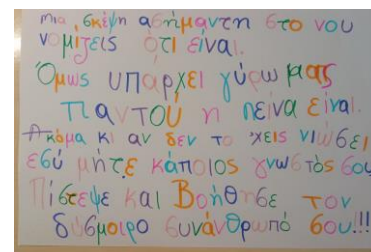 Μια σκέψη ασήμαντη στο νου
νομίζεις ότι είναι.
Όμως υπαρχει γύρω μας
Παντού η πείνα είναι.
Ακόμα κι αν δεν το 'χεις νιώσει
εσύ μήτε κάποιος γνωστός σου
Πίστεψε και Βοήθησε τον
δύσμοιρο συνάνθρωπό σου!!!